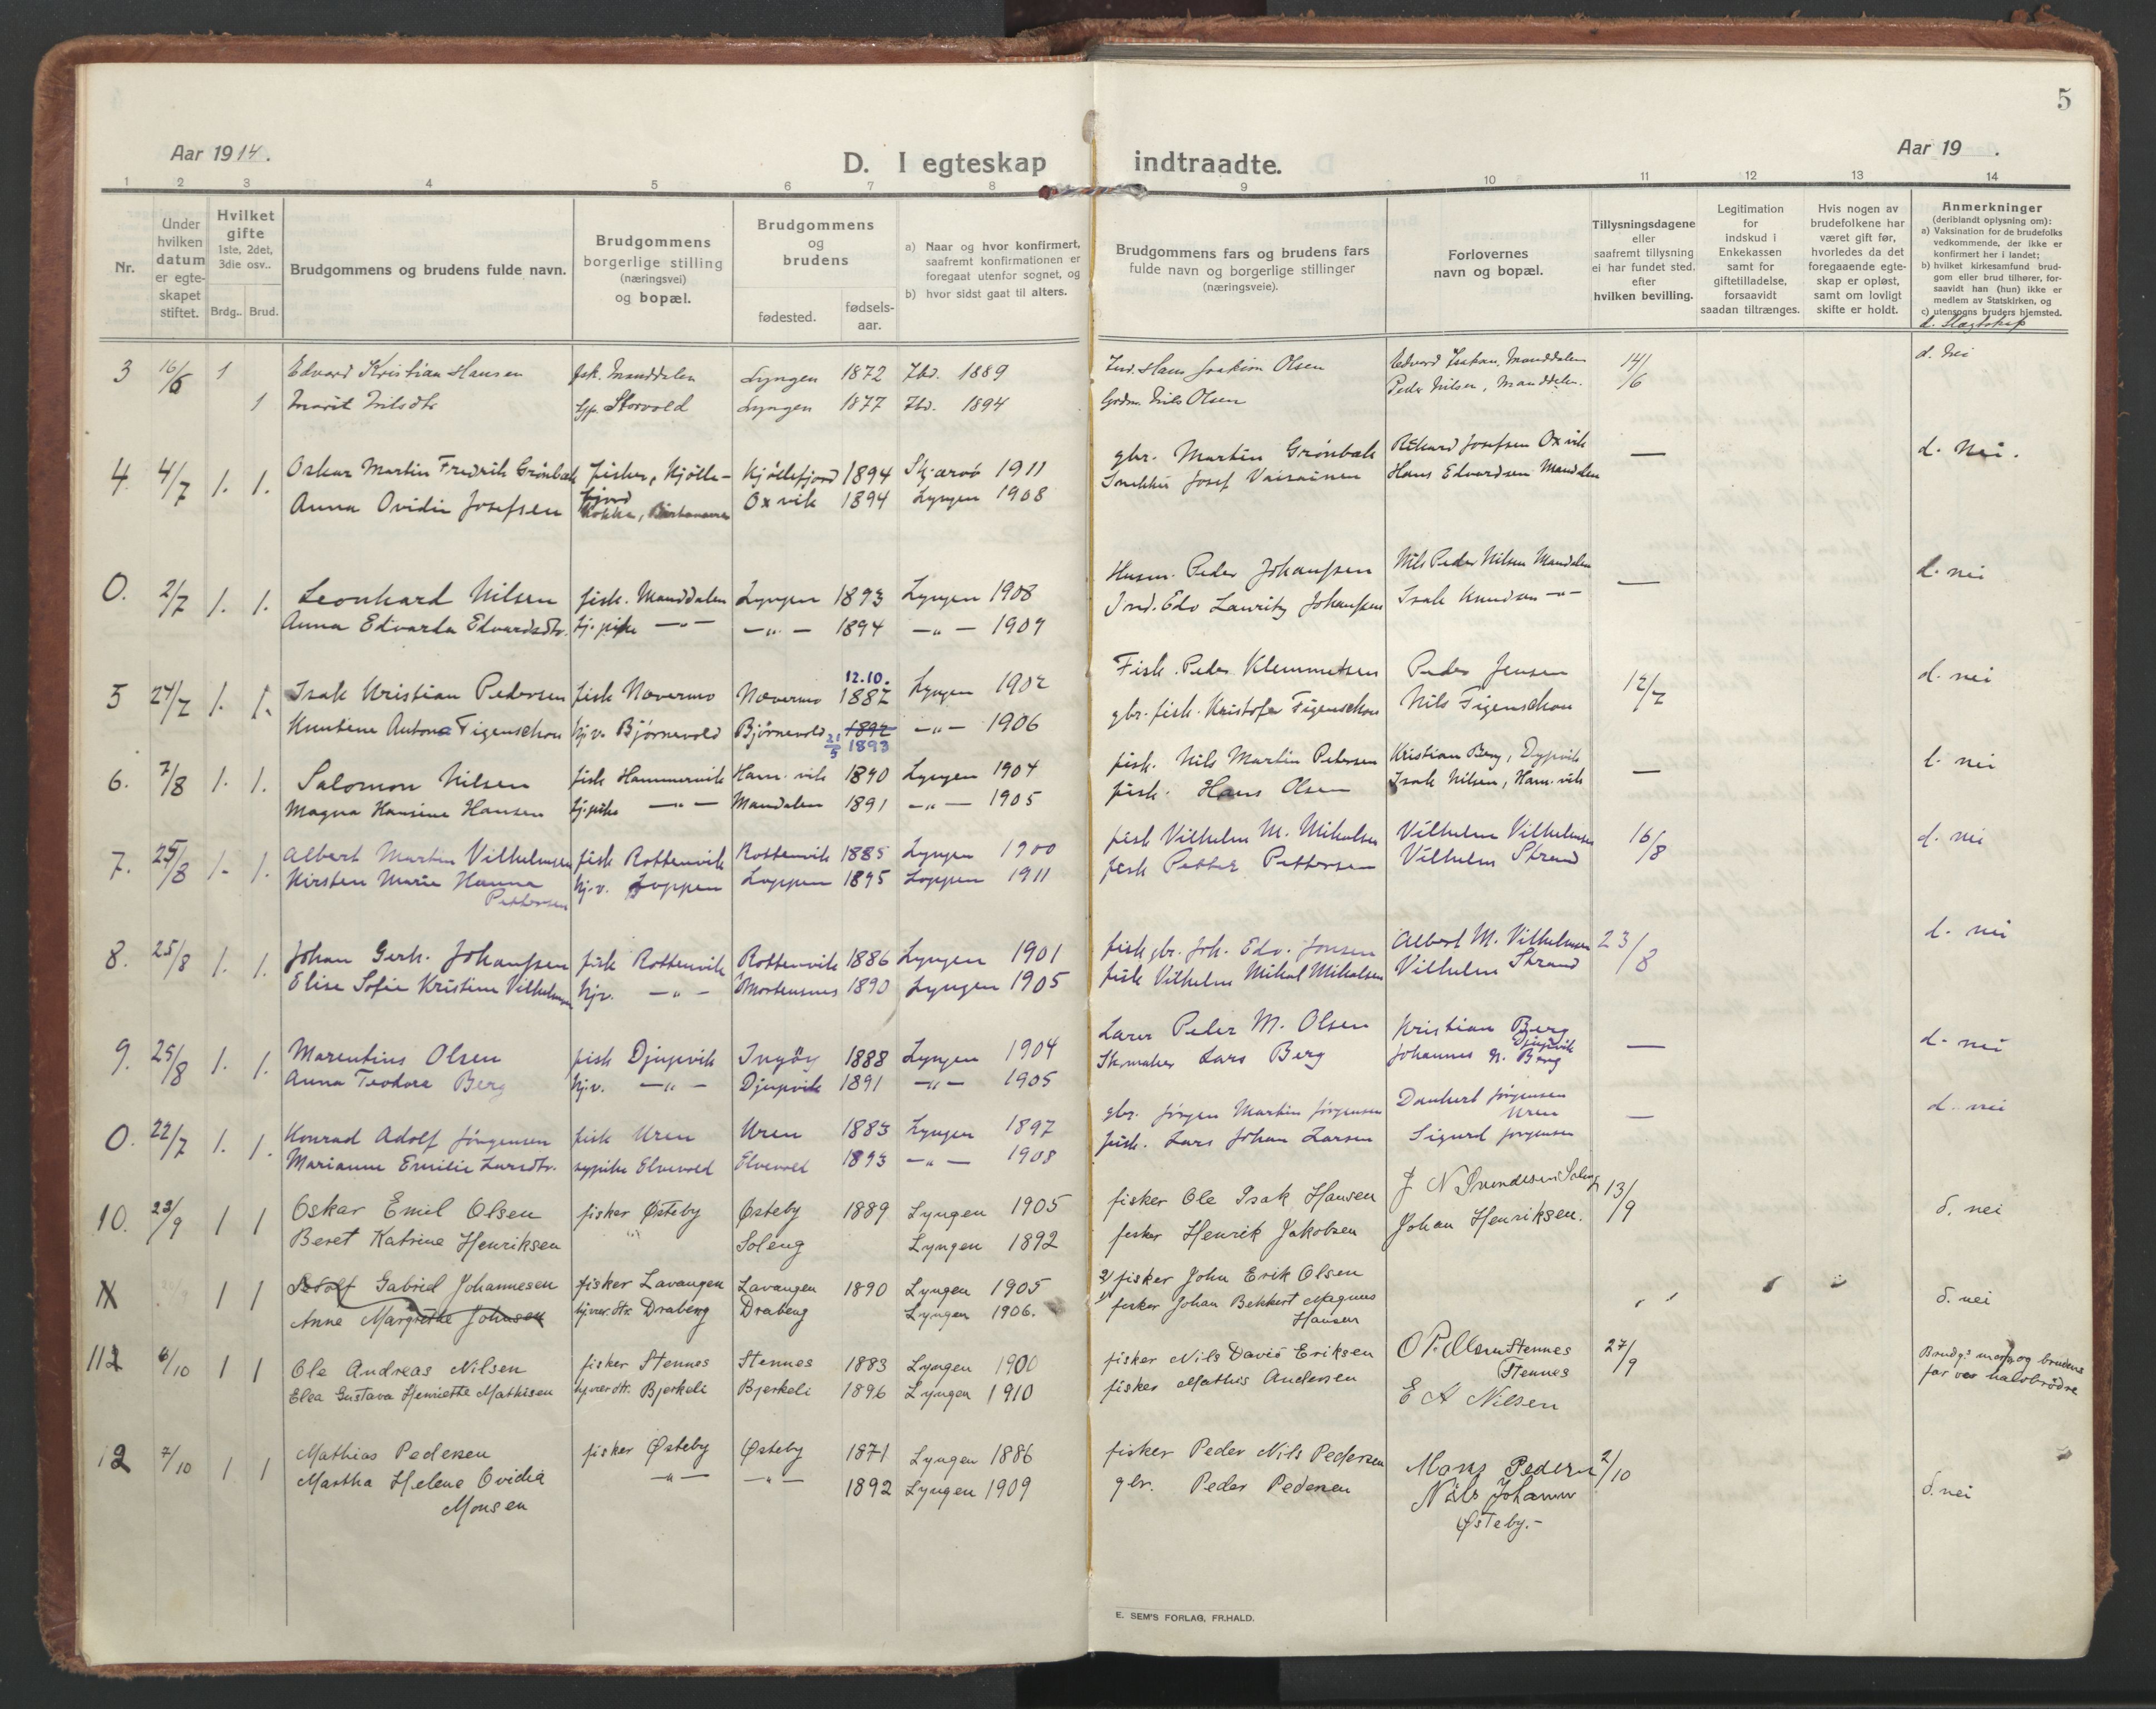 5
Aar 1914.
D. I egteskap indtraadte.
Aar 19 .
1 2 3 4 5 6 7 8 9 10 11 12 13 14
Nr.
Under hvilken datum er egte-skapet stiftet.
Hvilket gifte 1ste, 2det, 3die osv..
Brdg.. Brud.
Brudgommens og brudens fulde navn.
Brudgommens borgerlige stilling (næringsvei) og bopæl.
Brudgommens og brudens
fødested.
fødsels-aar.
a) Naar og hvor konfirmert, saafremt konfirmationen er foregaat utenfor sognet, og
b) hvor sidst gaat til alters.
Brudgommens fars og brudens fars fulde navn og borgerlige stillinger (næringsveie).
Forlovernes navn og bopæl.
Tillysningsdagene eller saafremt tillysning ei har fundet sted. efter hvilken bevilling.
Legitimation for indskud i Enkekassen samt for giftetilladelse, forsaavidt saadan tiltrænges.
Hvis nogen av brudefolkene har været gift før, hvorledes da det foregaaende egte-skap er opløst, samt om lovligt skifte er holdt.
Anmerkninger
(deriblandt oplysning om):
a) Vaksination for de brudefolks vedkommende, der ikke er konfirmert her i landet;
b) hvilket kirkesamfund brud-gom eller brud tilhører, for-saavidt han (hun) ikke er medlem av Statskirken, og
c) utensogns bruders hjemsted.
d. Slægtskap
3 16/6 1 Edvard Kristian Hansen fisk. Manddalen Lyngen 1872 1889 Hans Joakim Olsen Manddalen 14/6 d. nei
1 Marit Nilsdtr Storvold Lyngen 1877 1894 Nils Olsen Peder Nilsen, Manddalen.
4. 4/7 1. 1. Oskar Martin Fredrik Grönbæk fisker, Kjölle-fjord Kjöllefjord 1894 Skjærvö 1911 gbr. Martin Grönbæk Rikard Josefsen Oxvik — d. Nei.
Anna Ovidie Josefsen Oxvik 1894 Lyngen 1908 Snekker Josef Vaisainen Hans Edvardsen Mandalen
O. 2/7 1. 1. Leonhard Nilsen fisk. Manddalen Lyngen 1893 Lyngen 1908 Husm. Peder Johansen Nils Peder Nilsen Mandalen — d. nei
Anna Edvarda Edvardsdtr. tj. pike —"— —"— 1894 —"— 1909 Ind. Edv Lauritz Johansen Isak Knudsen —"—
5 24/7 1. 1. Isak Kristian Pedersen fisk Navermo Navermo 12.10. 1882 Lyngen 1902 Fisk. Peder Klemmetsen Peder Jensen 12/7 d. nei
Kuntene Antona Figenschou hj.v. Björnevold Björnevold 1892 21/5 1893 —"— 1906 gbr. fisk. Kristofer Figenschou Nils Figenschou
6. 7/8 1. 1. Salomon Nilsen fisk Hammervik Ham.vik 1890 Lyngen 1904 fisk. Nils Martin Petersen Kristian Berg, Dypvik — d. nei
Magna Hansine Hansen tj.pike —"— Mandalen 1891 —"— 1905 fisk. Hans Olsen Isak Nilsen, Ham.vik
7. 25/8 1. 1. Albert Martin Vilhelmsen fisk Rottenvik Rottenvik 1885 Lyngen 1900 fisk Vilhelm M. Mikalsen Vilhelm Vilhelmsen 16/8 d. nei
Kirsten Marie Hanna Pettersen hj.v. Loppen Loppen 1895 Loppen 1911 fisk Petter Pettersen Vilhelm Strand
8. 25/8 1. 1. Johan Gerh. Johansen fisk Rottenvik Rottenvik 1886 Lyngen 1901 fisk gbr. Joh. Edv. Jonsen Albert M. Vilhelmsen 23/8 d. nei
Elise Sofie Kristine Vilhelmsen hjv. —"— Mortensnes 1890 Lyngen 1905 fisk Vilhelm Mikal Mikalsen Vilhelm Strand
9. 25/8 1. 1. Marentius Olsen fisk Djupvik Ingöy 1888 Lyngen 1904 Lærer Peder M. Olsen Kristian Berg Djupvik — d. nei
Anna Teodora Berg hj.v. —"— Djupvik 1891 —"— 1905 Skomaker Lars Berg Johannes N. Berg
O. 22/7 1. 1. Konrad Adolf Jörgensen fisk Uren Uren 1883 Lyngen 1897 gbr. Jörgen Martin Jörgensen Dankert Jörgensen Uren — d. nei
Marianne Emilie Larsdtr. sypike Elvevold Elvevold 1893 —"— 1908 fisk. Lars Johan Larsen Sigurd Jörgensen
10. 23/9 1 1 Oskar Emil Olsen fisker Østeby Østeby 1889 Lyngen 1905 fisker Ole Isak Hansen J N Svendsen Soleng 13/9 d. nei
Beret Katrine Henriksen Soleng Lyngen 1892 fisker Henrik Jakobsen Johan Henriksen.
11 1 1 Gabriel Johannesen fisker Lavangen Lavangen 1890 Lyngen 1905 2) fisker John Erik Olsen d. nei
Anne Margrethe Johnsen Drabeng Drabeng Lyngen 1906. 1) fisker Johan Bekkert Magnus Hansen
112 6/10 1 1 Ole Andreas Nilsen fisker Stennes Stennes 1883 Lyngen 1900 fisker Nils David Eriksen O P. Olsen Stennes 27/9 Brudg.s mor og brudens far var halvbrödre
Elea Gustava Henriette Mathisen Bjerkeli Bjerkeli 1896 Lyngen 1910 fisker Mathis Andersen Stennes E A Nilsen
12 7/10 1 1 Mathias Pedersen fisker Østeby Østeby 1871 Lyngen 1886 fisker Peder Nils Pedersen Mons Pedersen 2/10 d. nei
Martha Helene Ovidia Monsen —"— —"— 1892 Lyngen 1909 gbr. Peder Pedersen Nils Johansen Østeby.-
E. SEM'S FORLAG, FR.HALD.